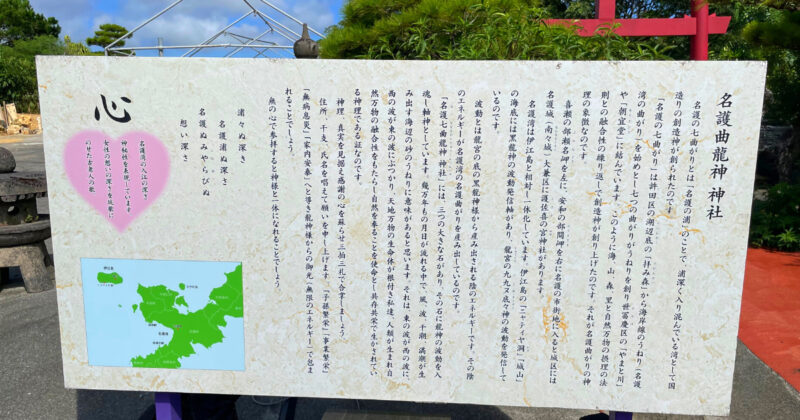 名護曲龍神 神社
名護の七曲がりとは「名護の浦」のことで、浦深く入り混んでいる湾として国
造りの創造神が創られたのです。
「名護の七曲がり」は許田区の湖辺底の「拝み森」から海岸線のうねり(名護
湾の曲がり)を始めとし七つの曲がりがうねりを創り世冨慶区の「やまと川」
や「朝宜堂」に結んでいます。このように海、山、森、里と自然万物の摂理の法
則との融合性の繰り返しで創造神が創り上げたのです。それが名護曲がりの神
理の象徴なのです。
喜瀬の部瀬名岬を左に、安和の部間岬を右に名護の市街地に入ると城区には
名護城(南々城)、大兼区に護佐喜の宮神社があります。
名護湾は伊江島と相対し一体化しています。伊江島の「ニャティヤ洞」「城山」
の海底には黒龍神の波動発信軸があり、龍宮の九ヌ底々神の波動を発信して
いるのです。
波動とは龍宮の底の黒龍神様から産み出される陰のエネルギーです。その陰
のエネルギーが名護湾の名護曲がりを産み出しているのです。
「名護七曲龍神 神社」には、三つの大きな石があり、その石に龍神の波動を入
魂し軸神としています。幾万年もの月日が流れる中で、風、波、干潮、満潮が生
み出す海辺の砂のうねりに意味があると思います。それは東の波が西の波に、
西の波が東の波にぶつかり、天地万物の生命体が根付き私達、人類が生まれ自
然万物の融合性をもたらし自然を奉ることを使命とし共存共栄で生かされてい
る神理である証なのです。
神理、真実を見据え感謝の心を蘇らせ三拍三礼で合掌しましょう。
住所、干支、氏名を唱えて願いを申し上げます。「子孫繁栄」「事業繁栄」
「無病息災」「家内安泰」へと導き龍神様からの御光(無限のエネルギー)で包ま
れることでしょう。
無の心で奉拝すると神様と一体になれることでしょう。
浦々ぬ深さ
名護浦ぬ深さ
名護ぬみやらびぬ
想い深さ
心
名護湾の入江の深さ
神秘性を表現しています
女性の想いの深さを城歌に
のせた古老人の歌
伊江島